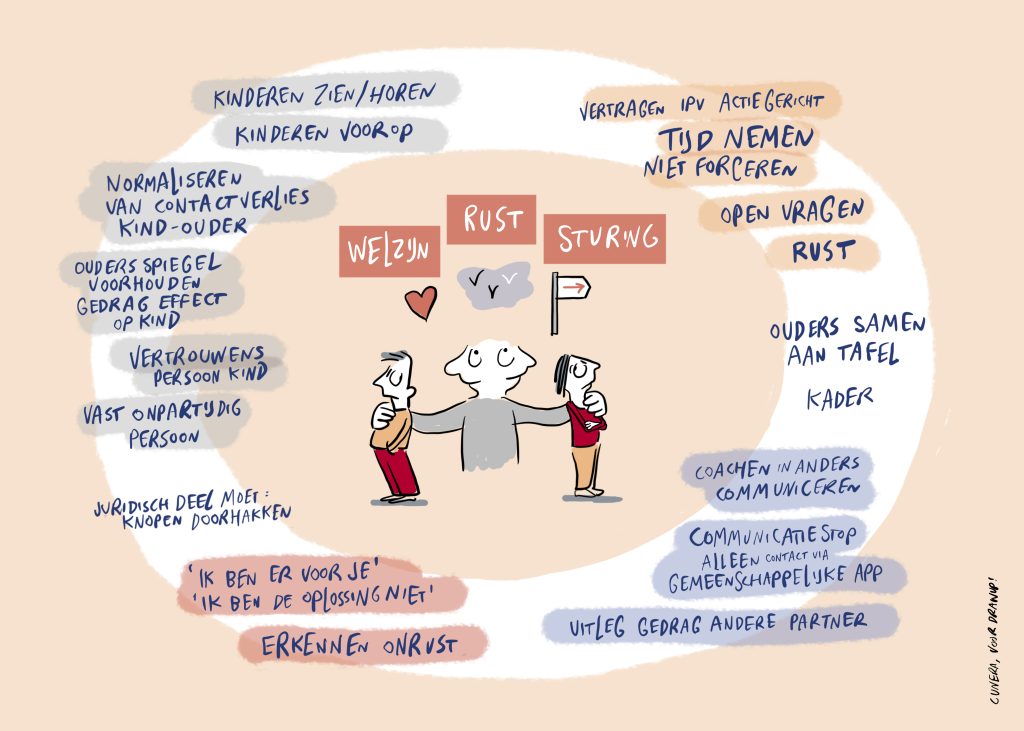 KINDEREN ZIEN/HOREN
KINDEREN VOOROP
NORMALISEREN
VAN CONTACTVERLIES
KIND-OUDER
OUDERS SPIEGEL
VOORHOUDEN
GEDRAG EFFECT
OP KIND
VERTROUWENS
PERSOON KIND
VAST ONPARTIJDIG
PERSOON
JURIDISCH DEEL MOET:
KNOPEN DOORHAKKEN
'IK BEN ER VOOR JE'
'IK BEN DE OPLOSSING NIET'
ERKENNEN ONRUST
WELZIJN
RUST
STURING
VERTRAGEN IPV ACTIEGERICHT
TIJD NEMEN
NIET FORCEREN
OPEN VRAGEN
RUST
OUDERS SAMEN
AAN TAFEL
KADER
COACHEN IN ANDERS
COMMUNICEREN
COMMUNICATIESTOP
ALLEEN CONTACT VIA
GEMEENSCHAPPELIJKE APP
UITLEG GEDRAG ANDERE PARTNER
CUNERA, VOOR DRANUP!